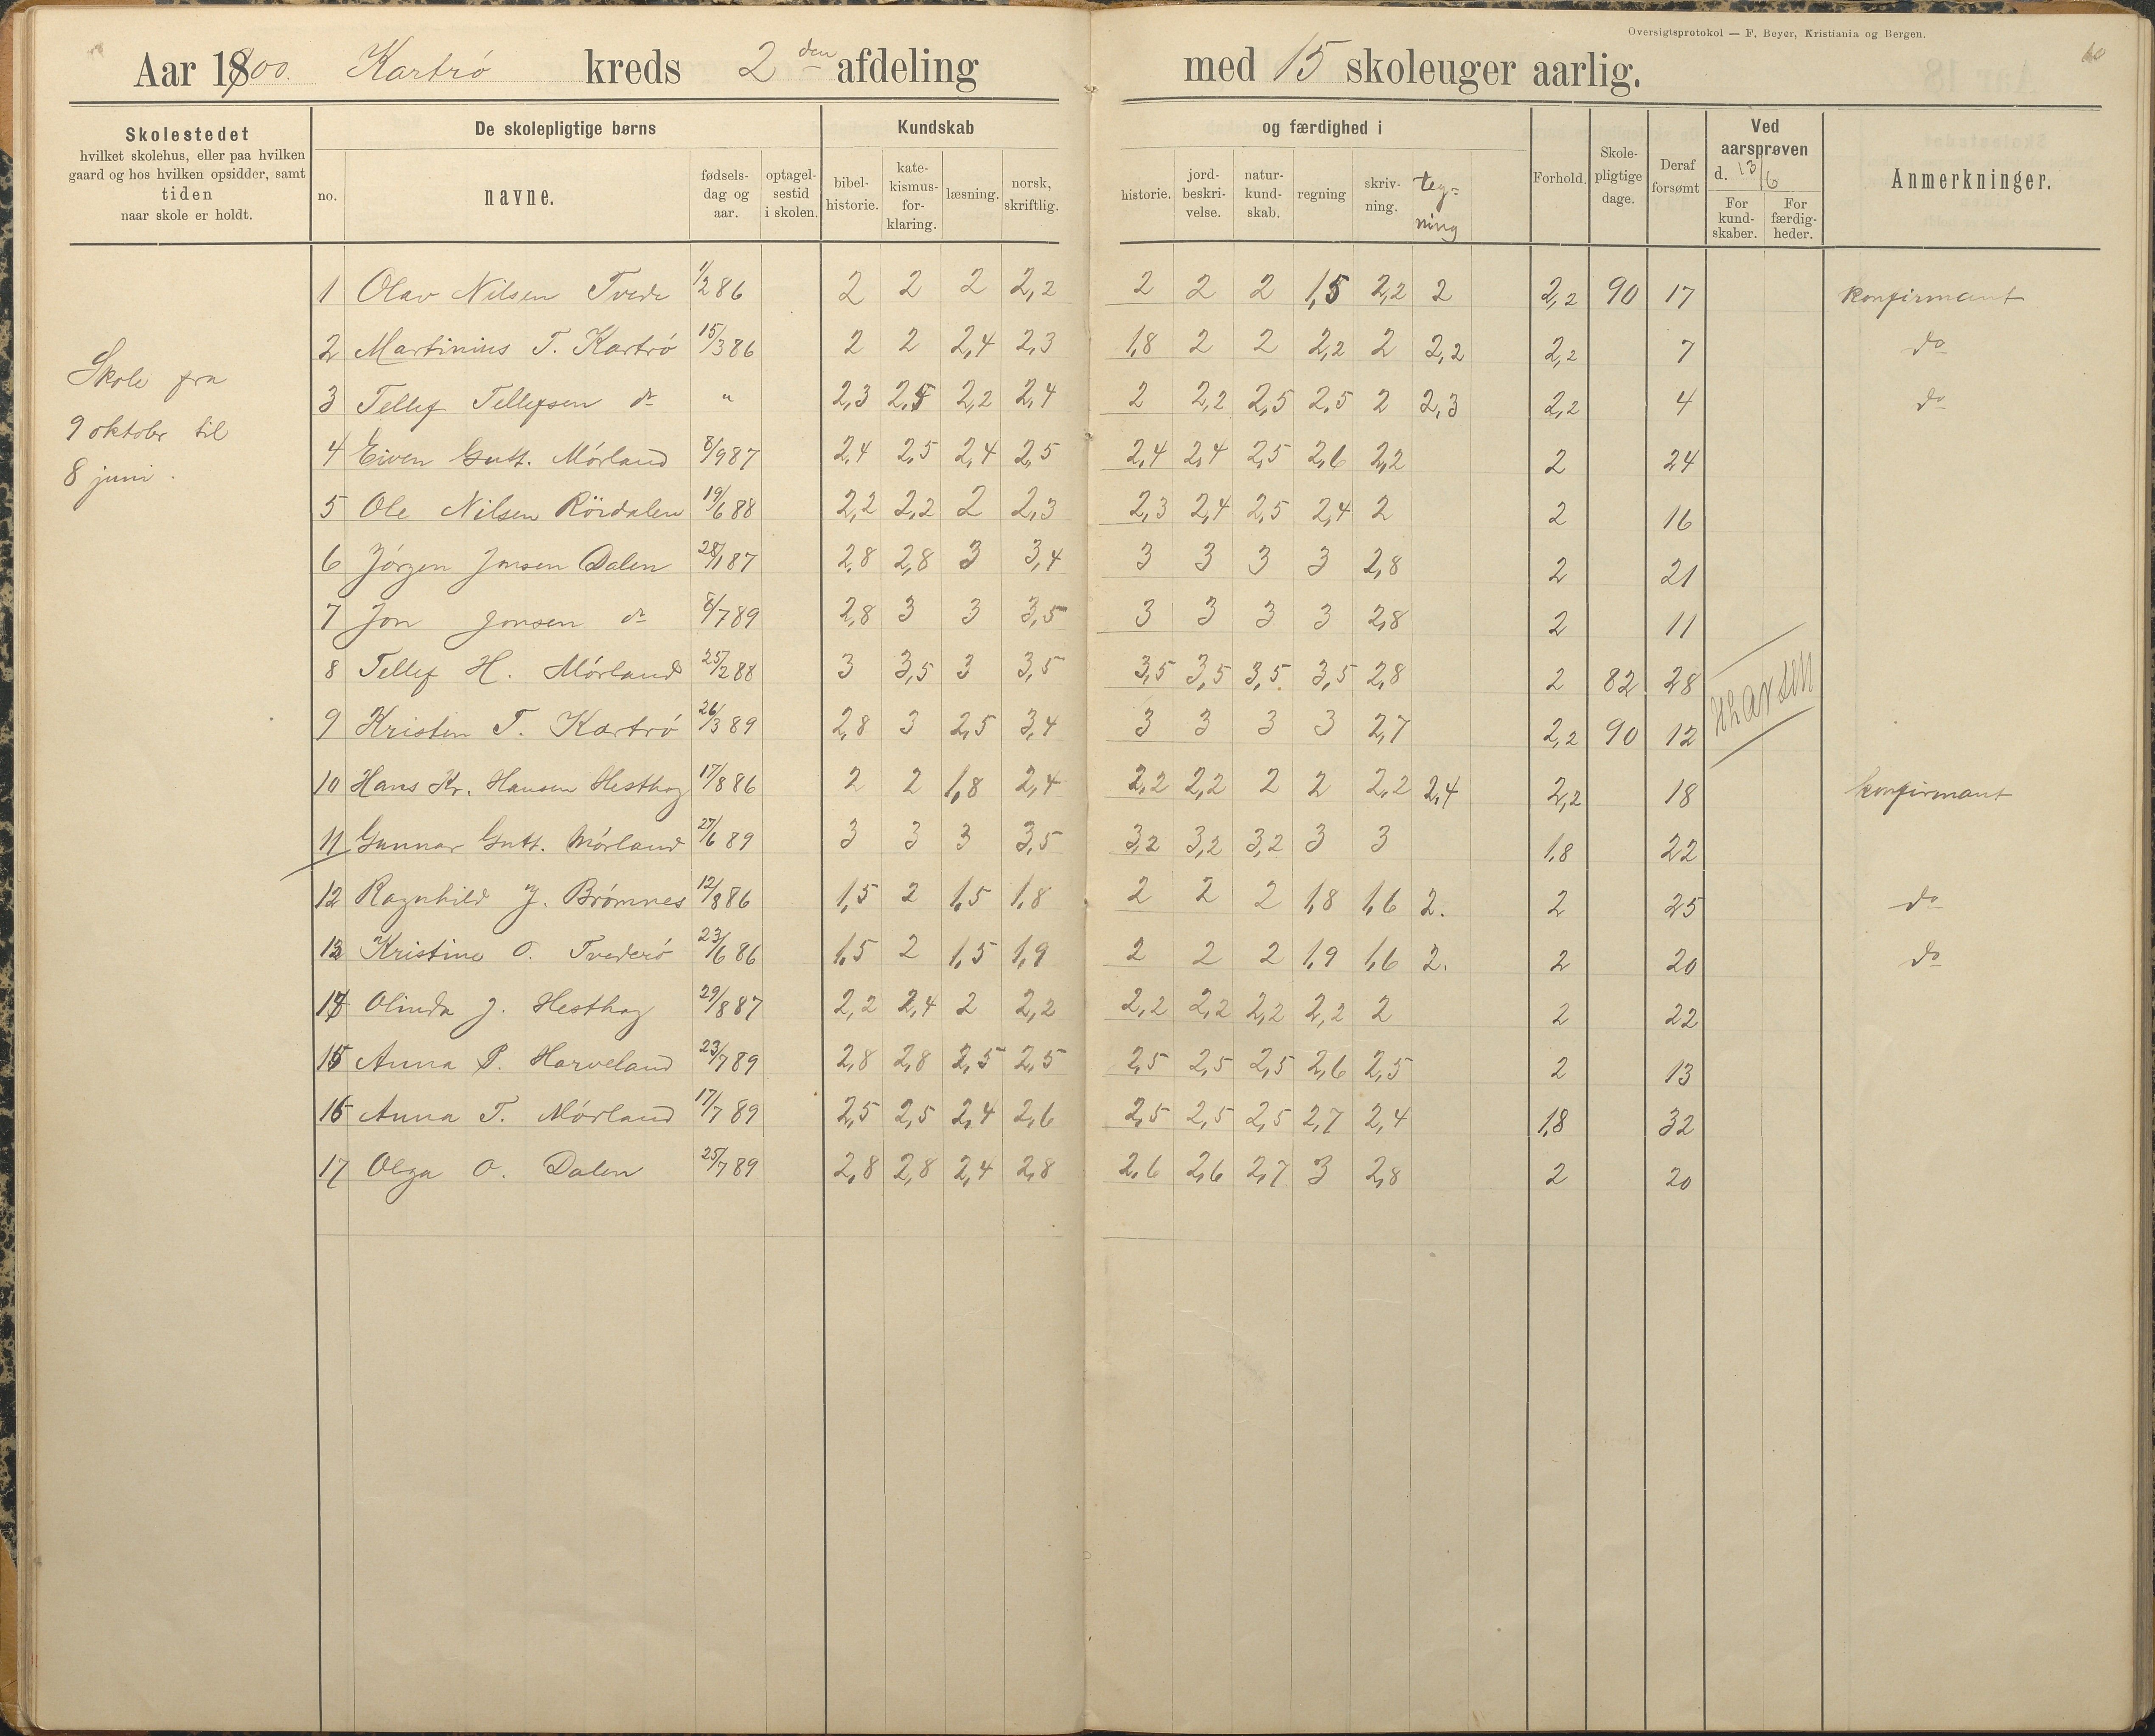 Oversigtsprotokol — F. Beyer, Kristiania og Bergen.
60
Aar 1900. Kartrö kreds 2den afdeling med 15 skoleuger aarlig.
Skolestedet
hvilket skolehus, eller paa hvilken
gaard og hos hvilken opsidder, samt
tiden
naar skole er holdt.
De skolepligtige børns
no.
navne.
fødsels-
dag og
aar.
optagel-
sestid
i skolen.
Kundskab
bibel-
historie.
kate-
kismus-
for-
klaring.
læsning.
norsk,
skriftlig.
og færdighed i
historie.
jord-
beskri-
velse.
natur-
kund-
skab.
regning
skriv-
ning.
teg-
ning
Forhold.
Skole-
pligtige
dage.
Deraf
forsømt
Ved
aarsprøven
d. 13/6
For
kund-
skaber.
For
færdig-
heder.
Anmerkninger.
Skole fra
9 oktober til
8 juni.
1 Olav Nilsen Tvede 1/2 86 2 2 2 2,2 2 2 2 1,5 2,2 2 2,2 90 17 konfirmant
2 Martinius T. Kartrö 15/3 86 2 2 2,4 2,3 1,8 2 2 2,2 2 2,2 2,2 7 do
3 Tellef Tellefsen do " 2,3 2,5 2,2 2,4 2 2,2 2,5 2,5 2 2,3 2,2 4 do
4 Eiven Gutt. Mörland 8/9 87 2,4 2,5 2,4 2,5 2,4 2,4 2,5 2,6 2,2 2 24
5 Ole Nilsen Röirdalen 19/6 88 2,2 2,2 2 2,3 2,3 2,4 2,5 2,4 2 2 16
6 Jörgen Jonsen Dalen 28/1 87 2,8 2,8 3 3,4 3 3 3 3 2,8 2 21
7 Jon Jonsen do 8/7 89 2,8 3 3 3,5 3 3 3 3 2,8 2 11
8 Tellef H. Mörland 25/2 88 3 3,5 3 3,5 3,5 3,5 3,5 3,5 2,8 2 82 28
9 Kristen T. Kartrö 26/3 89 2,8 3 2,5 3,4 3 3 3 3 2,7 2,2 90 12
10 Hans Kr. Hansen Hesthag 17/8 86 2 2 1,8 2,4 2,2 2,2 2 2 2,2 2,4 2,2 18 konfirmant
11 Gunnar Gutt. Mörland 27/6 89 3 3 3 3,5 3,2 3,2 3,2 3 3 1,8 22
12 Ragnhild J. Brömnes 12/8 86 1,5 2 1,5 1,8 2 2 2 1,8 1,6 2. 2 25 do
13 Kristine O. Tvederö 23/6 86 1,5 2 1,5 1,9 2 2 2 1,9 1,6 2. 2 20 do
14 Olinda J. Hesthag 29/8 87 2,2 2,4 2 2,2 2,2 2,2 2,2 2,2 2 2 22
15 Anna P. Harveland 23/7 89 2,8 2,8 2,5 2,5 2,5 2,5 2,5 2,6 2,5 2 13
16 Anna T. Mörland 17/7 89 2,5 2,5 2,4 2,6 2,5 2,5 2,5 2,7 2,4 1,8 32
17 Olga O. Dalen 25/7 89 2,8 2,8 2,4 2,8 2,6 2,6 2,7 3 2,8 2 20